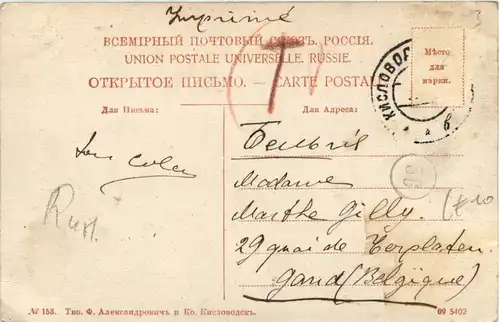 Imprimé
ВСЕМІРНЫЙ ПОЧТОВЫЙ СОЮЗЪ. РОССІЯ.
UNION POSTALE UNIVERSELLE. RUSSIE.
ОТКРЫТОЕ ПИСЬМО. — CARTE POSTA
T
Мѣсто
для
марки.
КИСЛОВОД
Для Письма:
Для Адреса:
Бельгія
Madame
Marthe Gilly.
29 quai de Terplaten
Gand (Belgique)
Russ.
№ 153. Тво. Ф. Александровичъ и Ко. Кисловодскъ.
09 5402